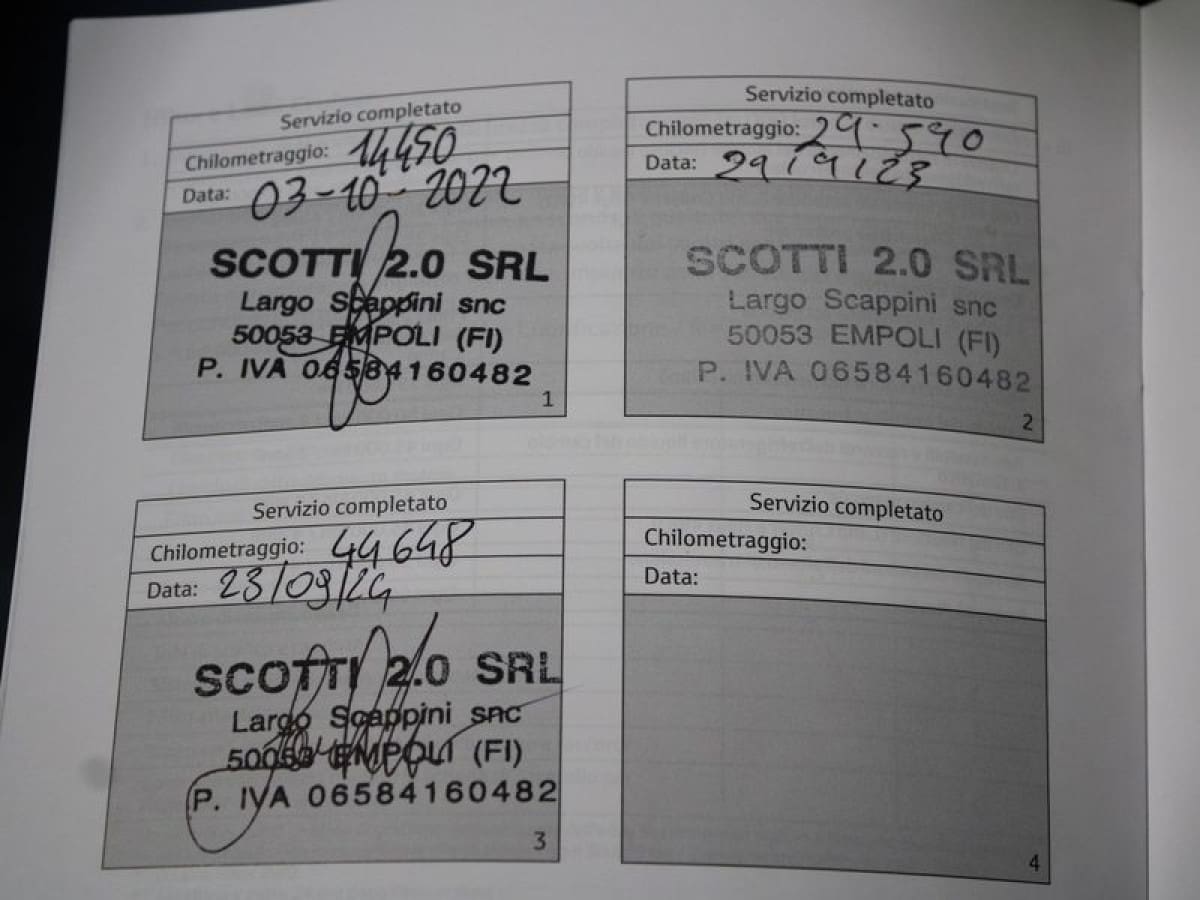 Servizio completato
Chilometraggio: 14450
Data: 03-10-2022
SCOTTI 2.0 SRL
Largo Scappini snc
50053 EMPOLI (FI)
P. IVA 06584160482
1
Servizio completato
Chilometraggio: 29.590
Data: 29/9/23
SCOTTI 2.0 SRL
Largo Scappini snc
50053 EMPOLI (FI)
P. IVA 06584160482
2
Servizio completato
Chilometraggio: 44648
Data: 23/09/24
SCOTTI 2.0 SRL
Largo Scappini snc
50053 EMPOLI (FI)
P. IVA 06584160482
3
Servizio completato
Chilometraggio:
Data:
4